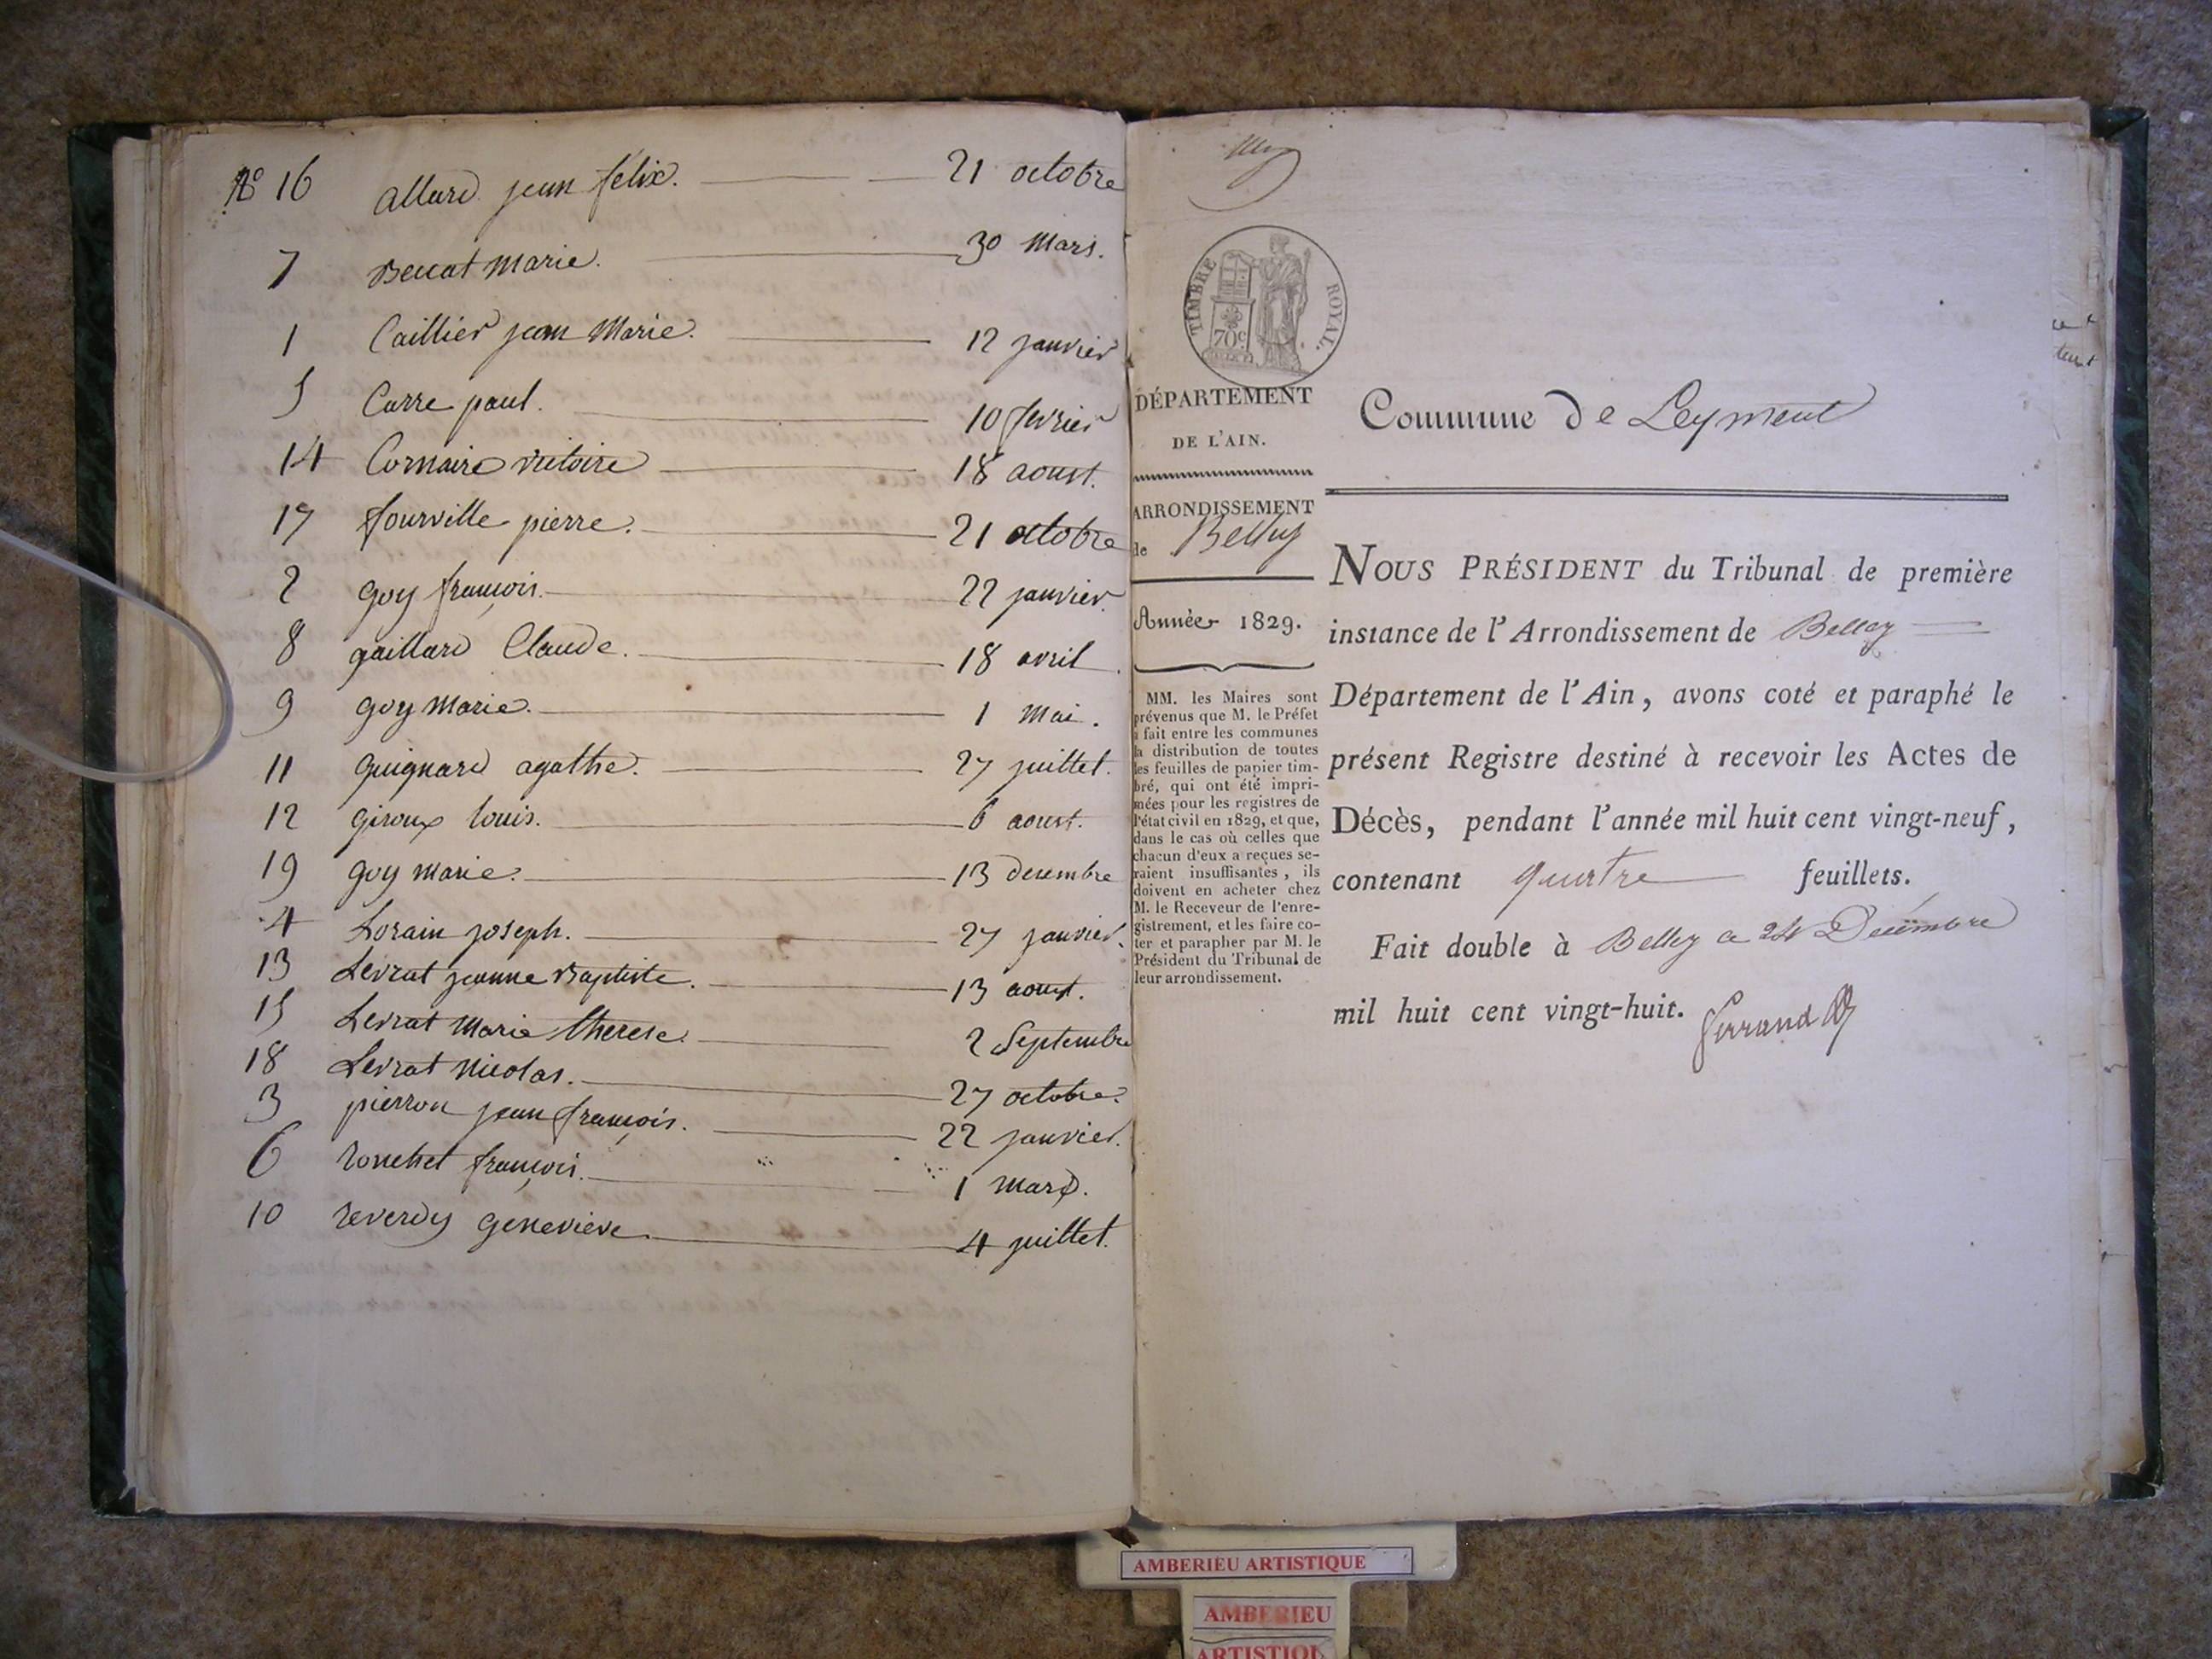 N° 16 allard jean félix. 21 octobre
7 Beccat Marie. 30 Mars.
1 Caillier jean Marie. 12 janvier
5 Carre paul. 10 fevrier
14 Cornaire victoire 18 aoust.
17 fourville pierre. 21 octobre
2 goy françois. 22 janvier.
8 gaillard Claude. 18 avril
9 goy Marie. 1 Mai.
11 guignard agathe. 27 juillet.
12 giroux louis. 6 aoust.
19 goy marie. 13 decembre
4 Lorain joseph. 27 janvier.
13 Levrat jeanne Baptiste. 13 aoust.
15 Levrat Marie therese. 2 Septembre
18 Levrat Nicolas. 27 octobre.
3 pierron jean françois. 22 janvier.
6 ronchet françois. 1 mars.
10 reverdy genevieve. 4 juillet.
TIMBRE ROYAL.
70c.
DÉPARTEMENT
DE L'AIN.
ARRONDISSEMENT
de Belley
Année 1829.
MM. les Maires sont
prévenus que M. le Préfet
a fait entre les communes
la distribution de toutes
les feuilles de papier tim-
bré, qui ont été impri-
mées pour les registres de
l'état civil en 1829, et que,
dans le cas où celles que
chacun d'eux a reçues se-
raient insuffisantes, ils
doivent en acheter chez
M. le Receveur de l'enre-
gistrement, et les faire co-
ter et parapher par M. le
Président du Tribunal de
leur arrondissement.
Commune de Leyment
NOUS PRÉSIDENT du Tribunal de première
instance de l'Arrondissement de Belley
Département de l'Ain, avons coté et paraphé le
présent Registre destiné à recevoir les Actes de
Décès, pendant l'année mil huit cent vingt-neuf,
contenant quatre feuillets.
Fait double à Belley ce 24 Décembre
mil huit cent vingt-huit.
AMBERIEU ARTISTIQUE
AMBERIEU
ARTISTIQUE